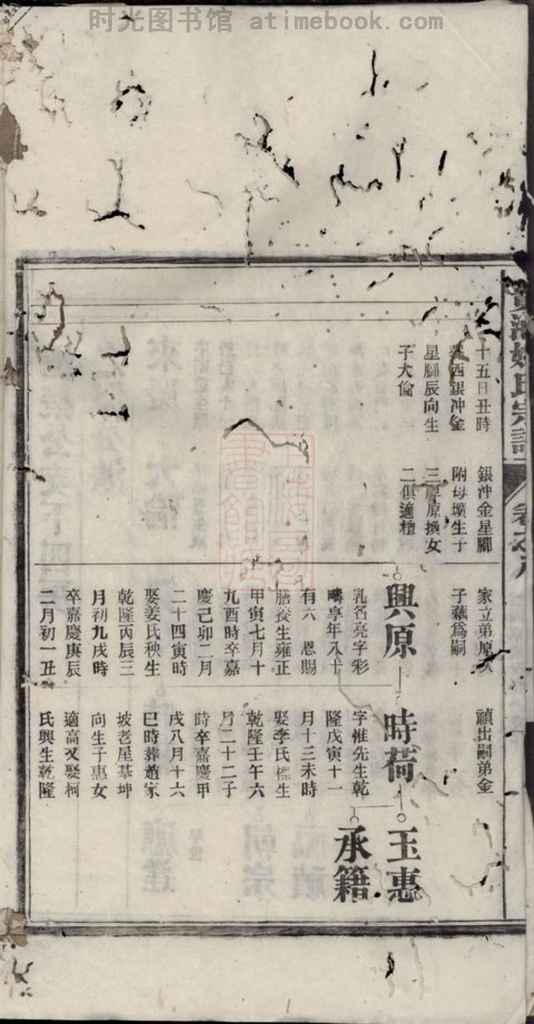 时光图书馆 atimebook.com
姚氏宗譜
十五日丑時
酉銀沖金
星關辰向生
子大倫
銀沖金星關
附母壙生子
三厚原撰女
二俱適檀
家立弟原次
子蘩為嗣
興原
乳名亮字彩
疇享年八十
有六 恩賜
膳發生雍正
甲寅七月十
九酉時卒嘉
慶己卯二月
二十四寅時
娶姜氏秧生
乾隆丙辰三
月初九戌時
卒嘉慶庚辰
二月初一丑
禎出嗣弟金
時荷
字惟先生乾
隆戊寅十一
月十三未時
娶李氏生
乾隆壬午六
月二十二子
時卒嘉慶甲
戌八月十六
巳時葬趙家
坡老屋基坤
向生子惠女
適高又娶柯
氏興生乾隆
玉惠
承籍